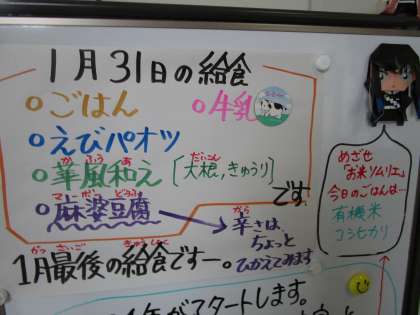 1月31日の給食
ごはん
牛乳
えびパオツ
華風和え〔大根,きゅうり〕
です
麻婆豆腐 → 辛さは
ちょっと
ひかえてみます
1月最後の給食ですー。
年がスタートします。
めざせ
「お米ソムリエ」
今日のごはんは…
有機米
コシヒカリ